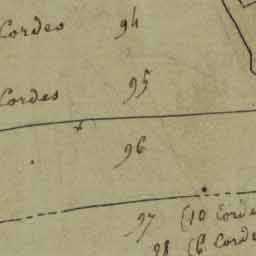 Cordes 94
Cordes 95
96
97 (10 Corde
98 (6 Corde